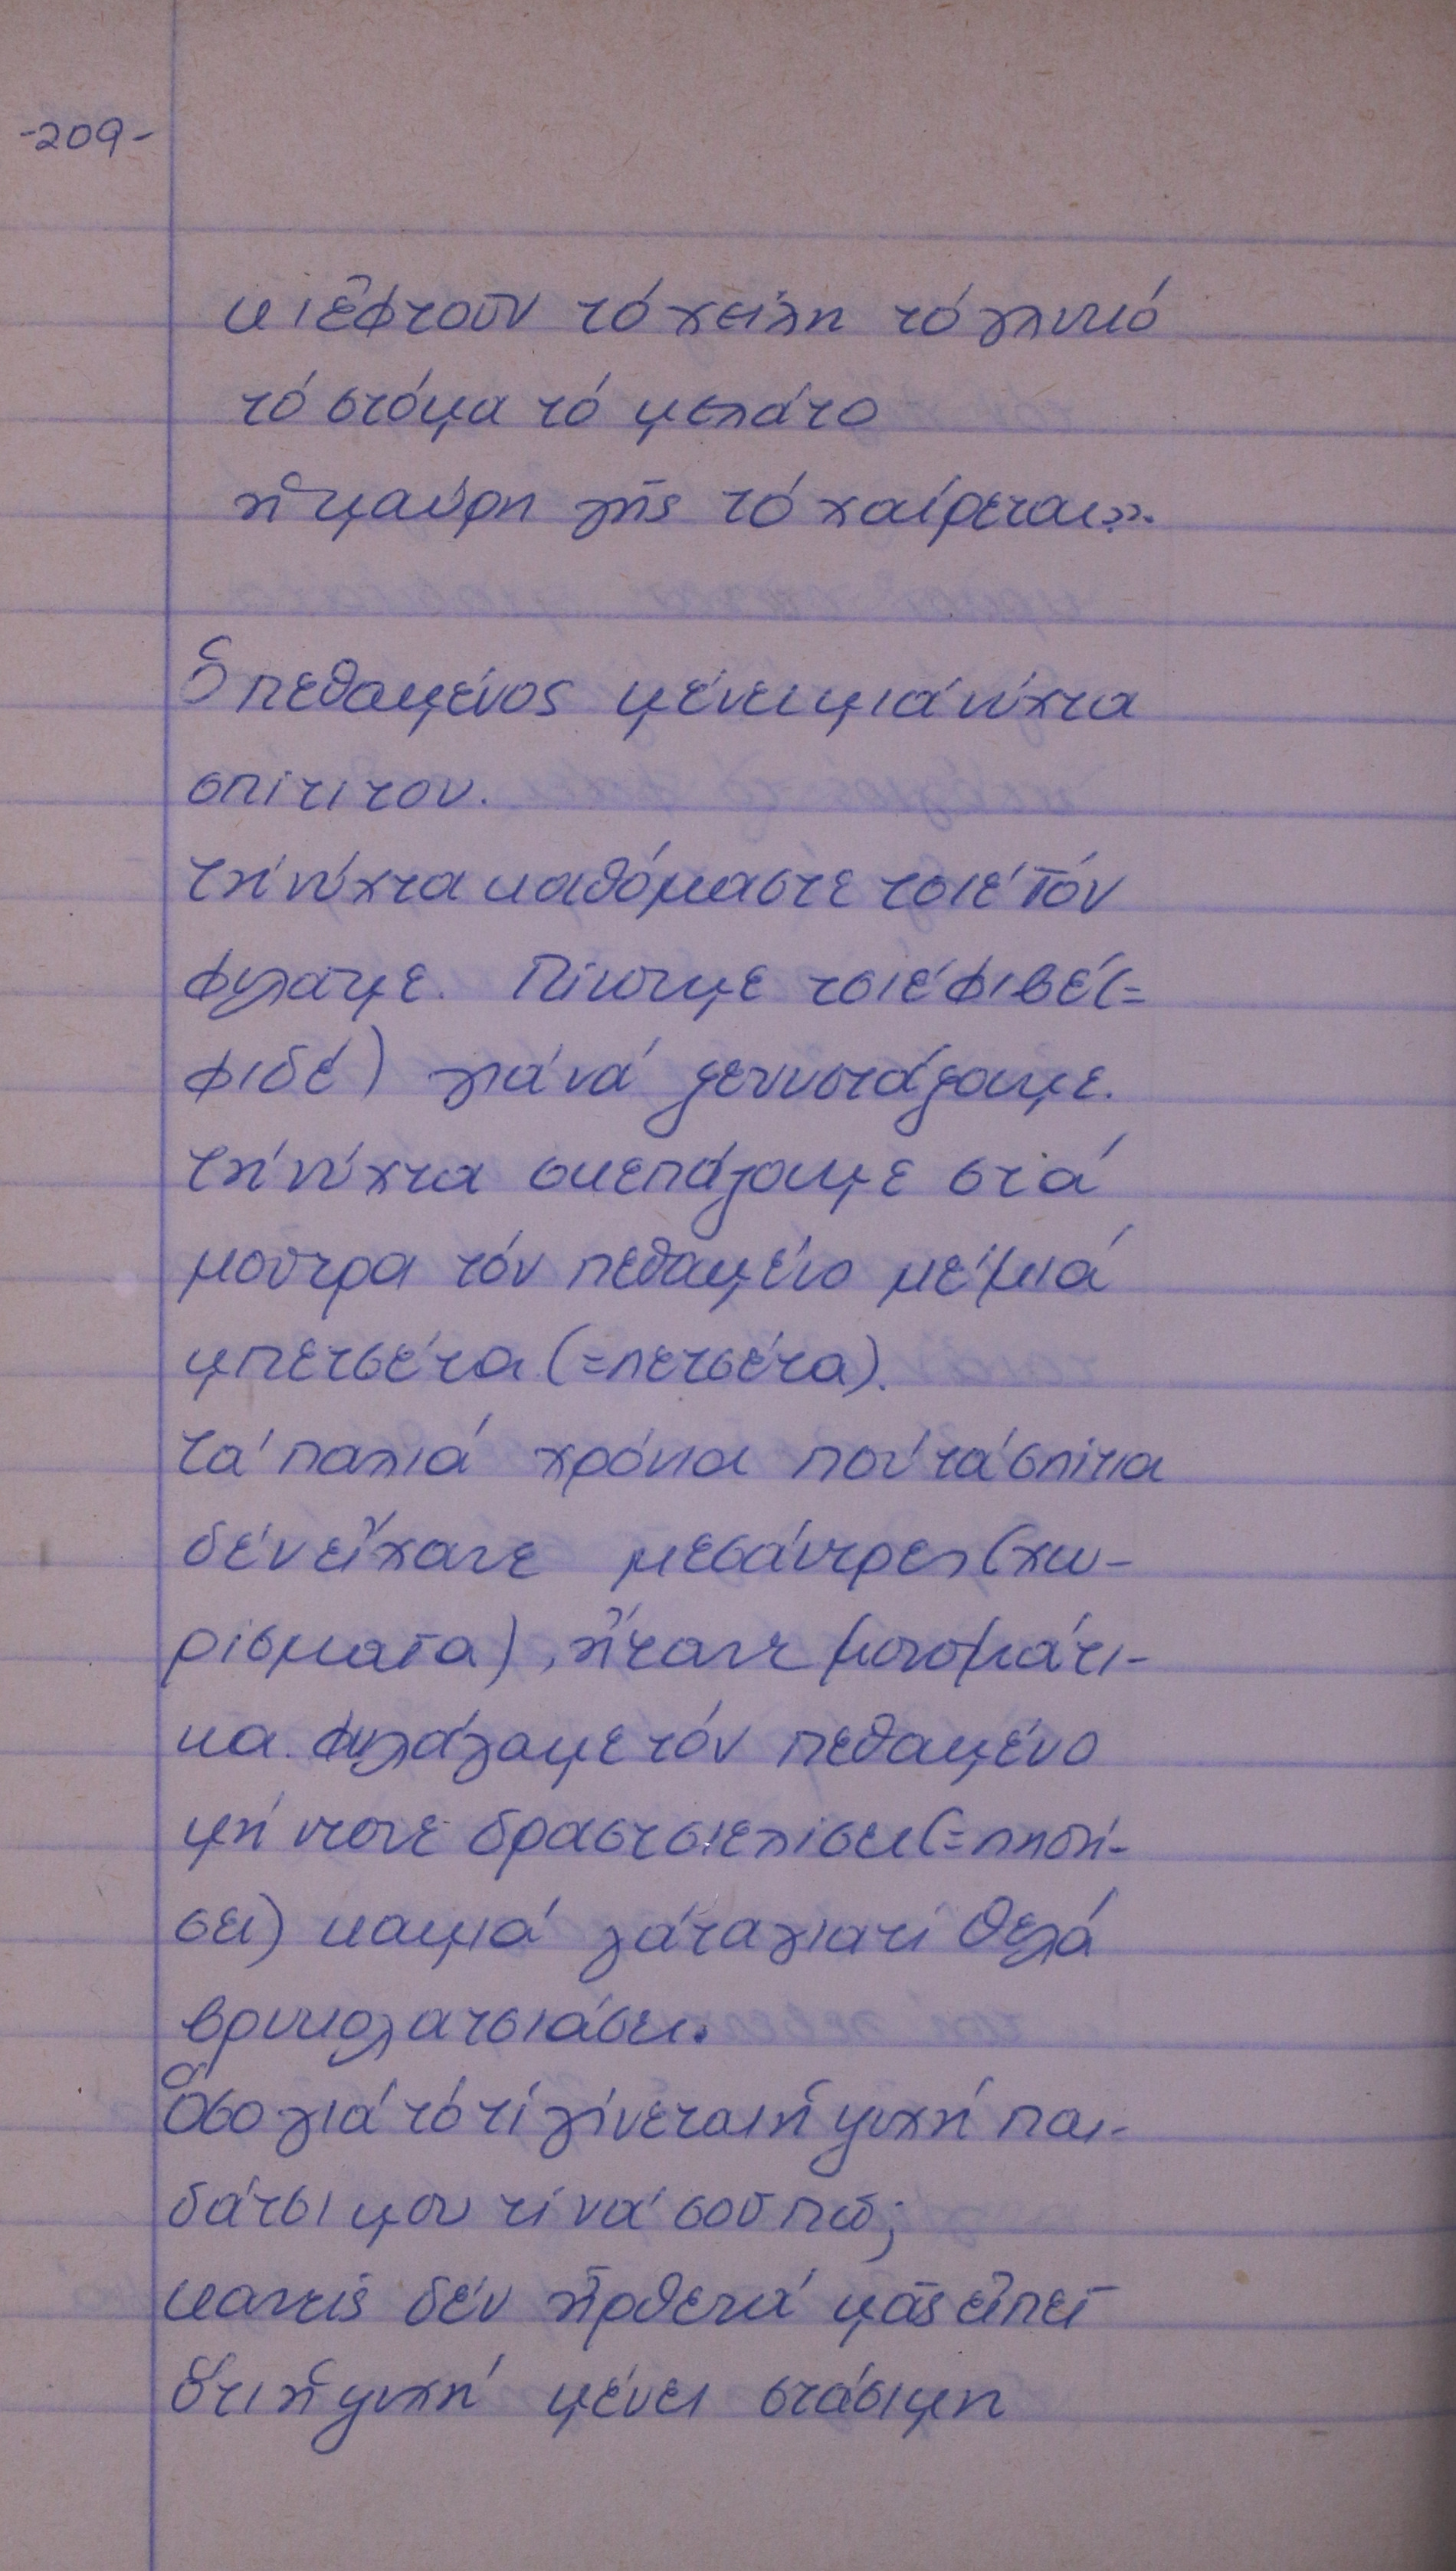 -209-
κι ἐφτοῦν τό χείλη τό γλυκό
τό στόμα τό μελάτο
ἡ μαύρη γῆς τό χαίρεται».
Ὁ πεθαμένος μένει μιά νύχτα
σπίτι του.
Τή νύχτα καθόμαστε τσιέ τόν
φυλαμε. Πίνουμε τσιέ φιβέ (=
φιδέ) γιά νά ξενυστάξουμε.
Τή νύχτα σκεπάζουμε στά
μούτρα τόν πεθαμένο μέ μιά
μπετσέτα (=πετσέτα).
Τά παλιά χρόνια πού τά σπίτια
δέν εἴχανε μεσάντρες (χω-
ρίσματα), ἤτανε μονομάτι-
κα. Φυλάγαμε τόν πεθαμένο
μή ντονε δρασ'τσιελίσει (=πηδή-
σει) καμιά γάτα γιατί θελά
βρυκολατσιάσει.
Ὅσο γιά τό τί γίνεται ἡ ψυχή παι-
δάτσι μου τί νά σοῦ πῶ;
κανείς δέν ἦρθε νά μᾶς εἰπεῖ
ὅτι ἡ ψυχή μένει στάσιμη